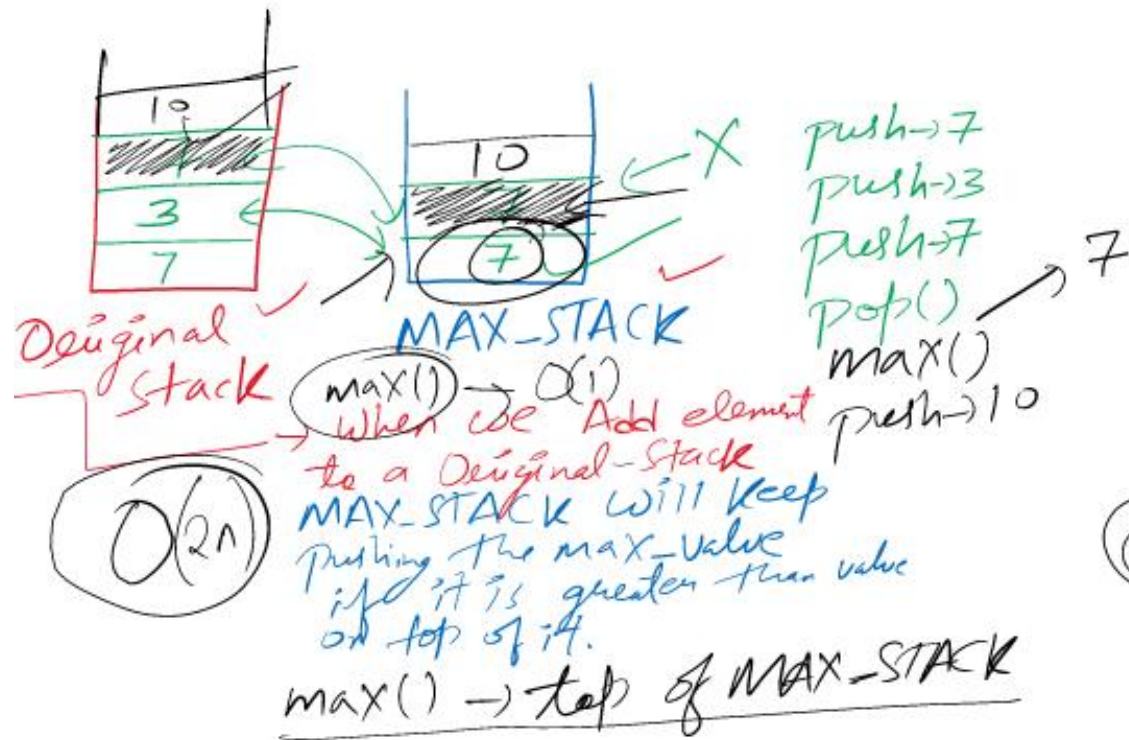 10
3
7
Original
Stack
10
7
MAX_STACK
X
push→7
push→3
push→7
pop()
7
max()
push→10
max() → O(1)
→ When we Add element
to a Original-Stack
MAX_STACK will keep
pushing the max_value
if it is greater than value
on top of it.
O(2n)
max() → top of MAX_STACK